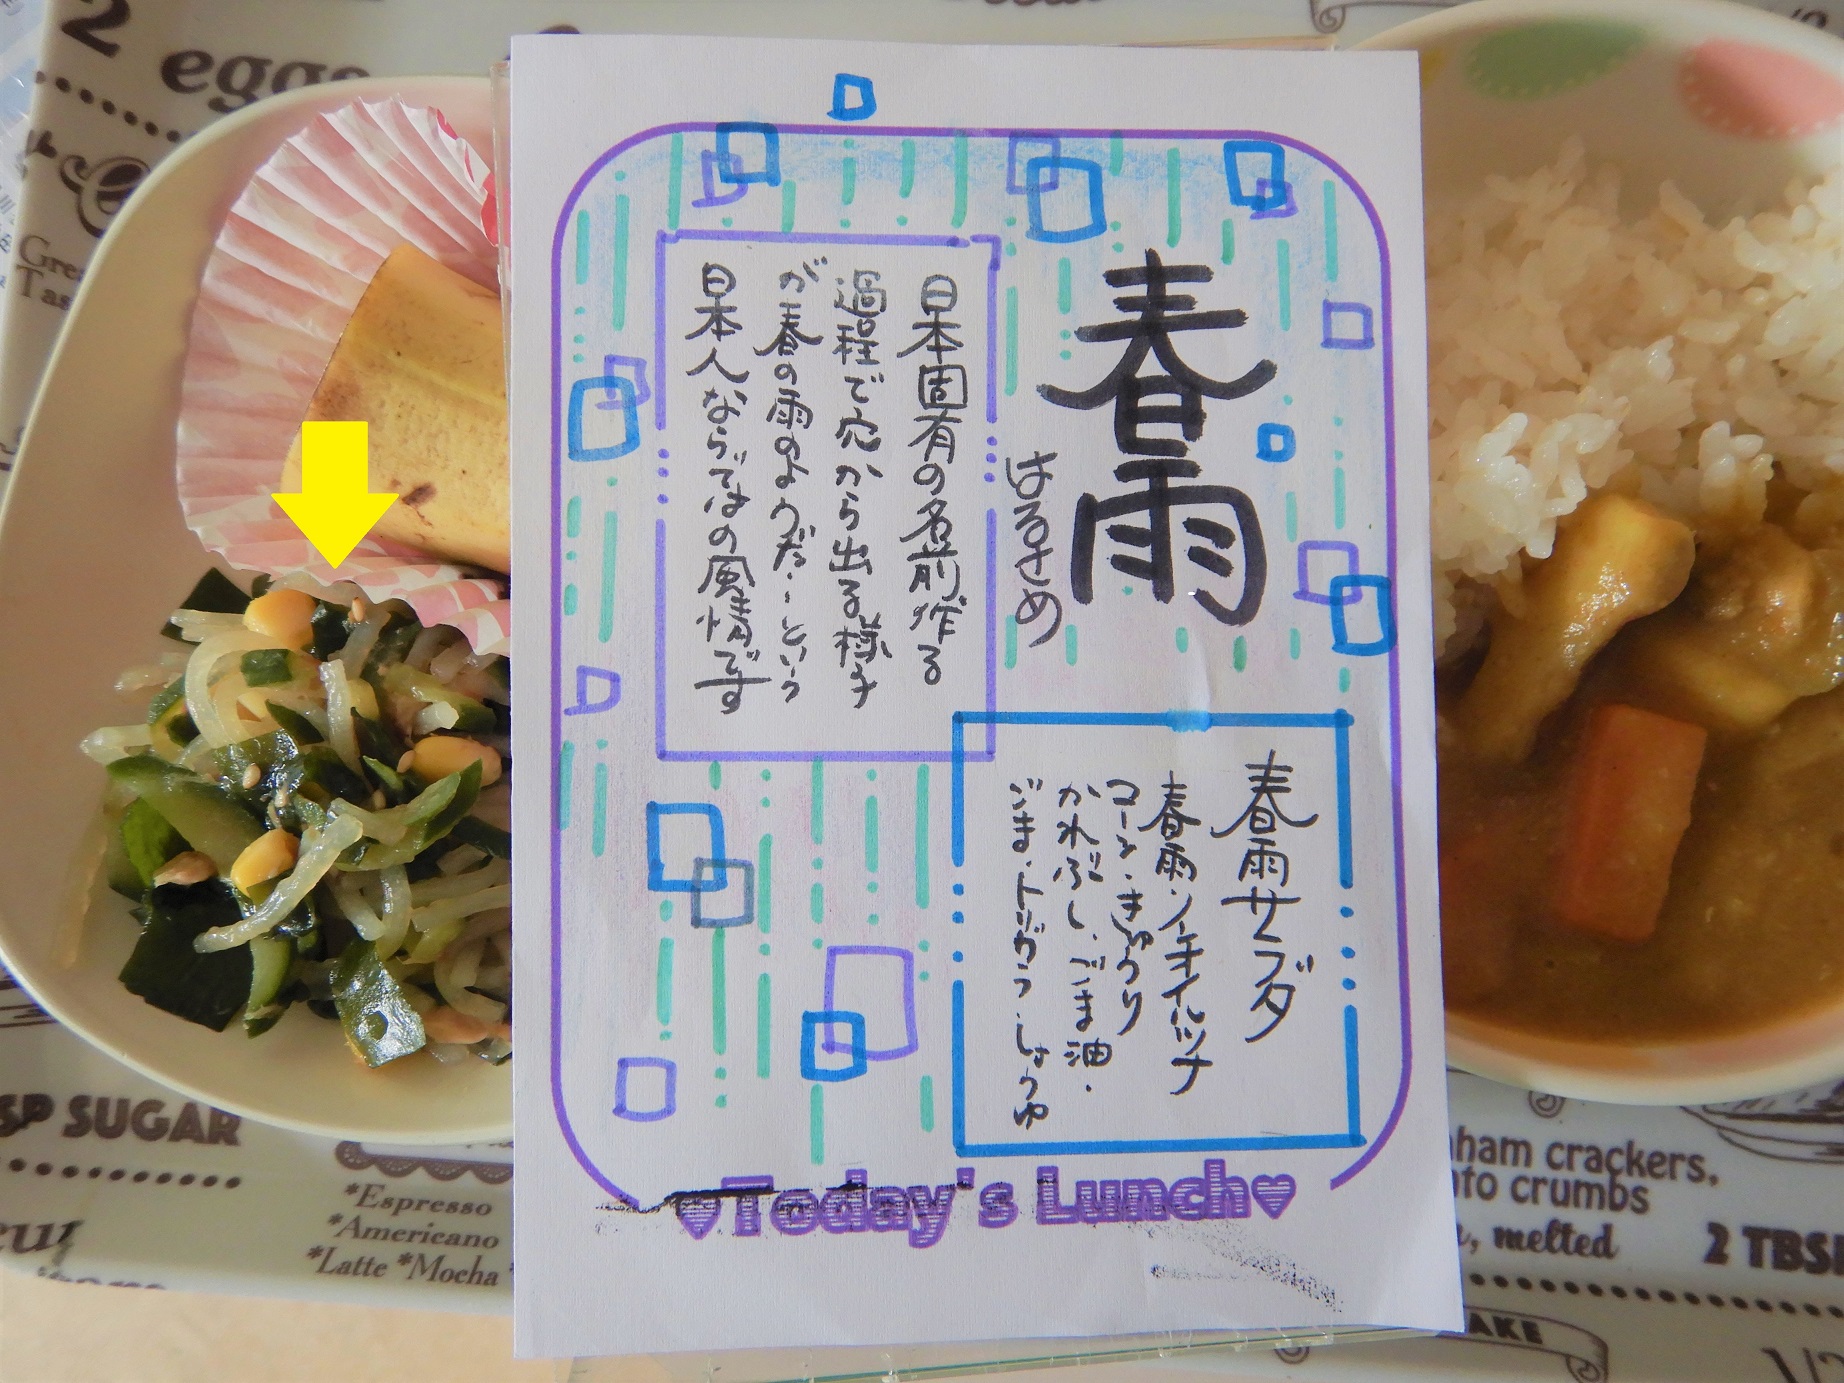 春雨
はるさめ
日本固有の名前作る
過程で穴から出る様子
が春の雨のようだ…という
日本人ならではの風情です
春雨サラダ
春雨・ノンオイルツナ
コーン・きゅうり
かれぶし・ごま油・
ごま・トリガラ・しょうゆ
♥Today's Lunch♥
2
eggs
SP SUGAR
*Espresso
*Americano
*Latte *Mocha
ham crackers,
nto crumbs
, melted
2 TBSP
AKE